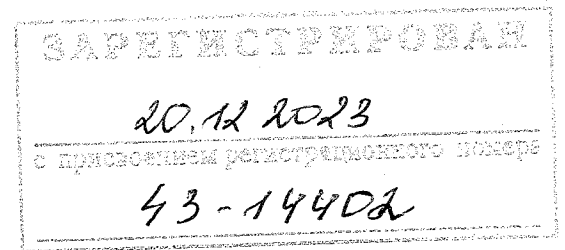 ЗАРЕГИСТРИРОВАН
20.12 2023
с присвоением регистрационного номера
43-14402